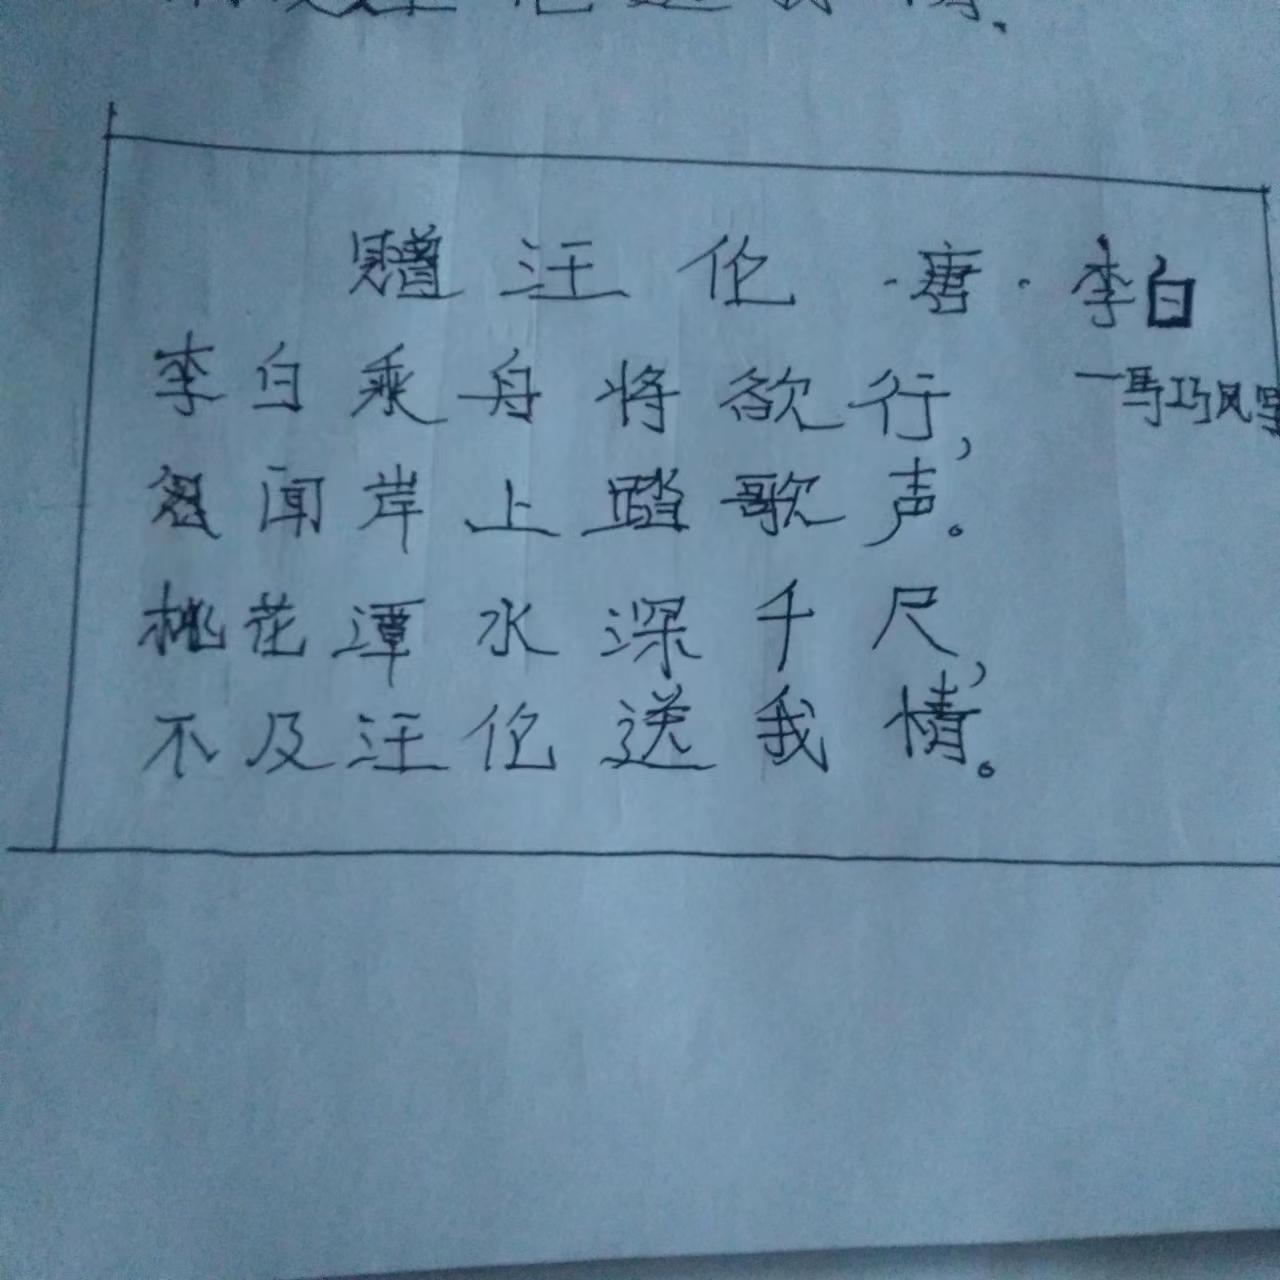 及汪伦送我情.
赠汪伦·唐·李白
一马巧风写
李白乘舟将欲行,
忽闻岸上踏歌声。
桃花潭水深千尺,
不及汪伦送我情。